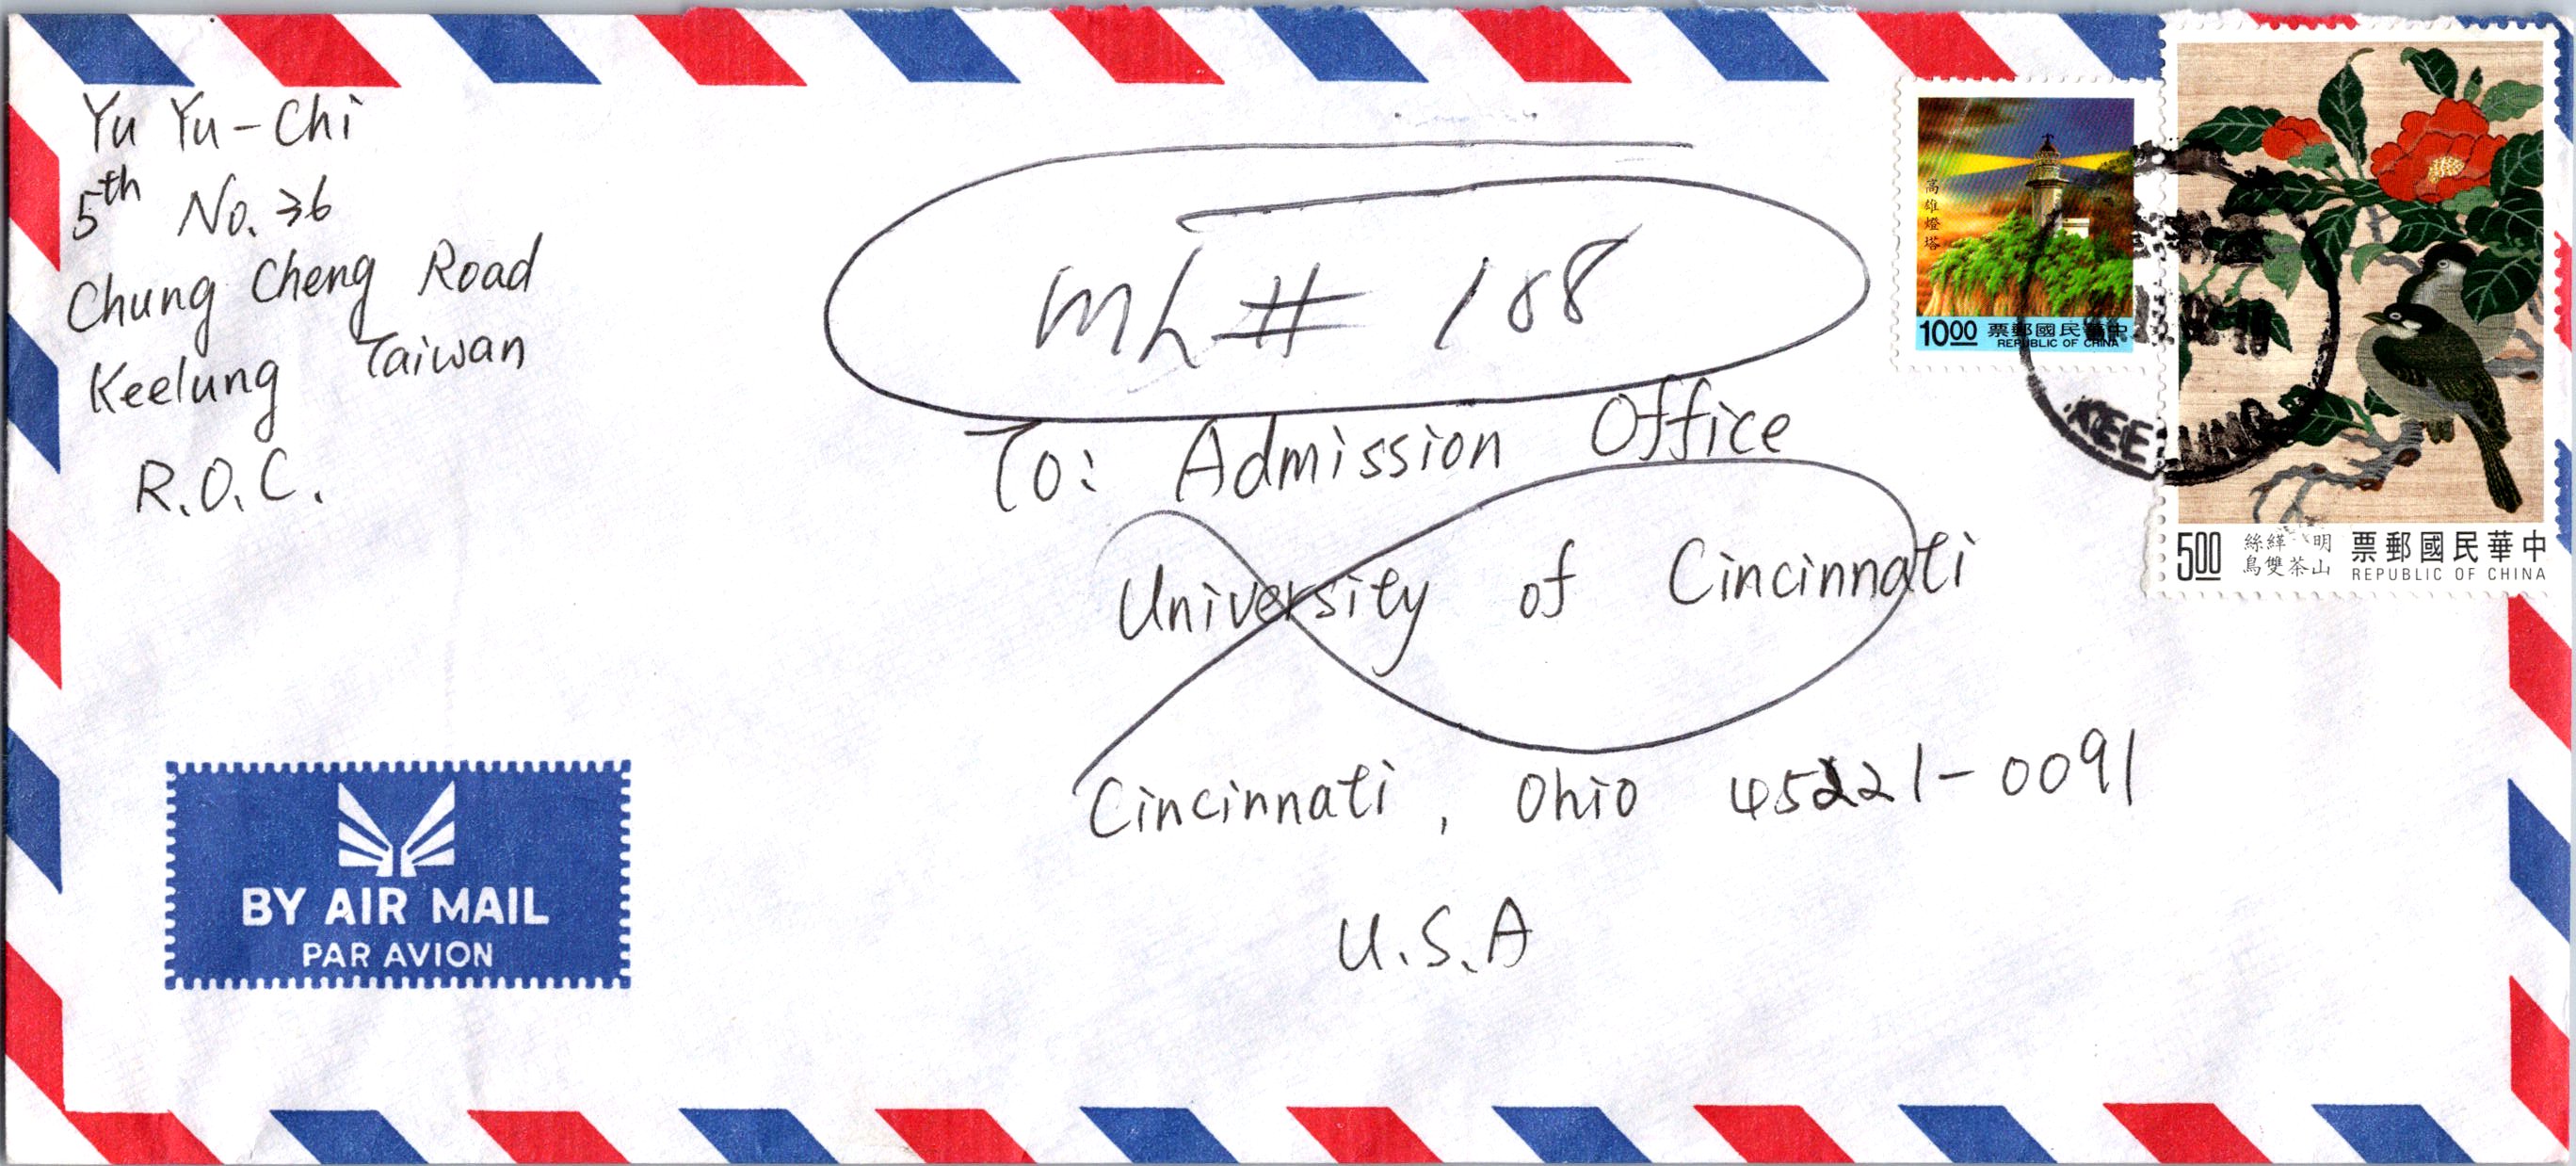 Yu Yu-Chi
5th No.36
Chung Cheng Road
Keelung Taiwan
R.O.C.
ML# 188
To: Admission Office
University of Cincinnati
Cincinnati, Ohio 45221-0091
U.S.A
BY AIR MAIL
PAR AVION
高雄燈塔
1000 票郵國民華中
REPUBLIC OF CHINA
500 票郵國民華中
REPUBLIC OF CHINA
鳥雙茶山
KEELUNG